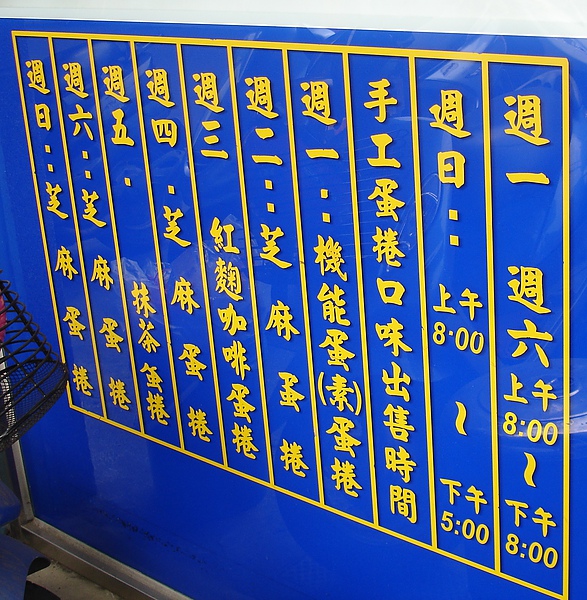 週一 週六上午8:00~下午8:00
週日:上午8:00~下午5:00
手工蛋捲口味出售時間
週一:機能蛋(素)蛋捲
週二:芝麻蛋捲
週三 紅麴咖啡蛋捲
週四.芝麻蛋捲
週五.抹茶蛋捲
週六:芝麻蛋捲
週日:芝麻蛋捲